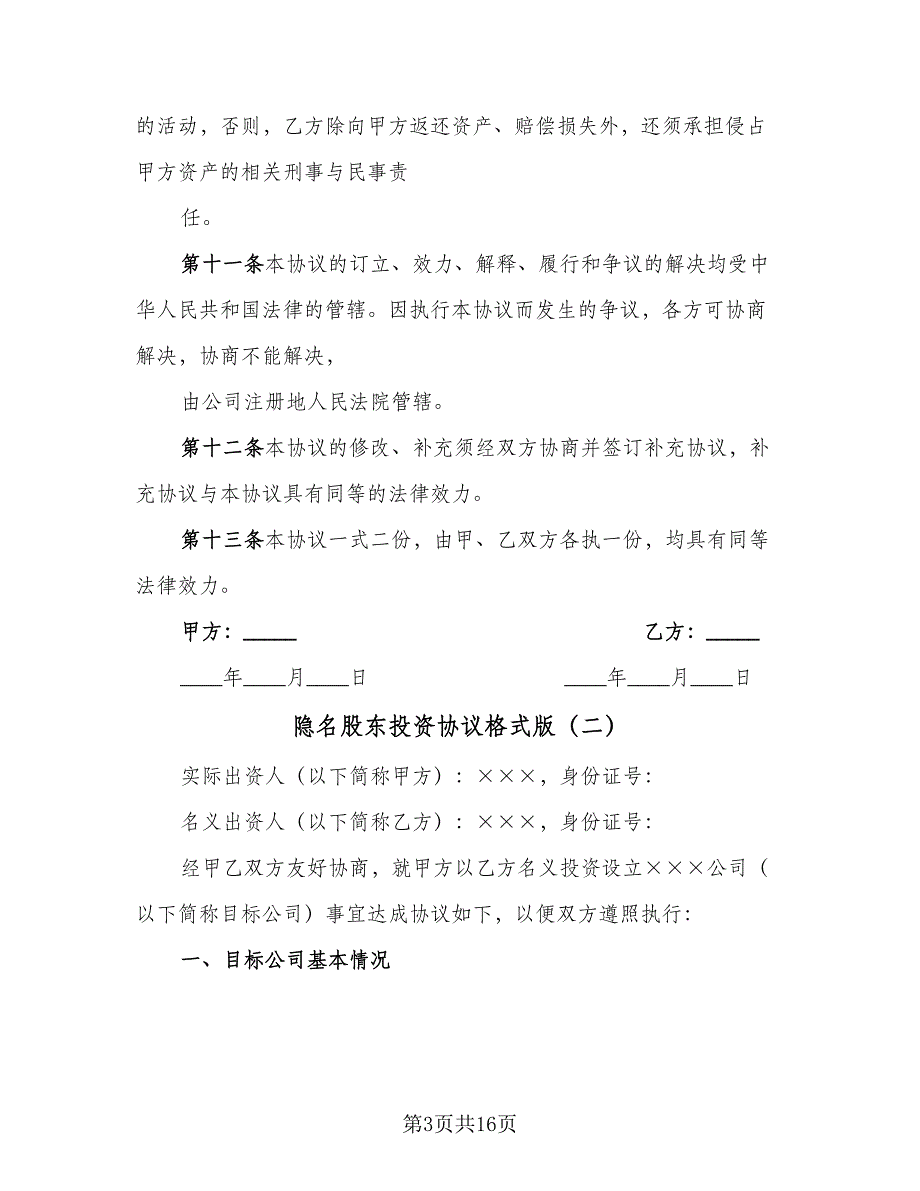 的活动，否则，乙方除向甲方返还资产、赔偿损失外，还须承担侵占
甲方资产的相关刑事与民事责
任。
第十一条本协议的订立、效力、解释、履行和争议的解决均受中
华人民共和国法律的管辖。因执行本协议而发生的争议，各方可协商
解决，协商不能解决，
由公司注册地人民法院管辖。
第十二条本协议的修改、补充须经双方协商并签订补充协议，补
充协议与本协议具有同等的法律效力。
第十三条本协议一式二份，由甲、乙双方各执一份，均具有同等
法律效力。
甲方：_____ 乙方：_____
____年____月____日 ____年____月____日
隐名股东投资协议格式版（二）
实际出资人（以下简称甲方）：×××，身份证号：
名义出资人（以下简称乙方）：×××，身份证号：
经甲乙双方友好协商，就甲方以乙方名义投资设立×××公司（
以下简称目标公司）事宜达成协议如下，以便双方遵照执行：
一、目标公司基本情况
第3页共16页